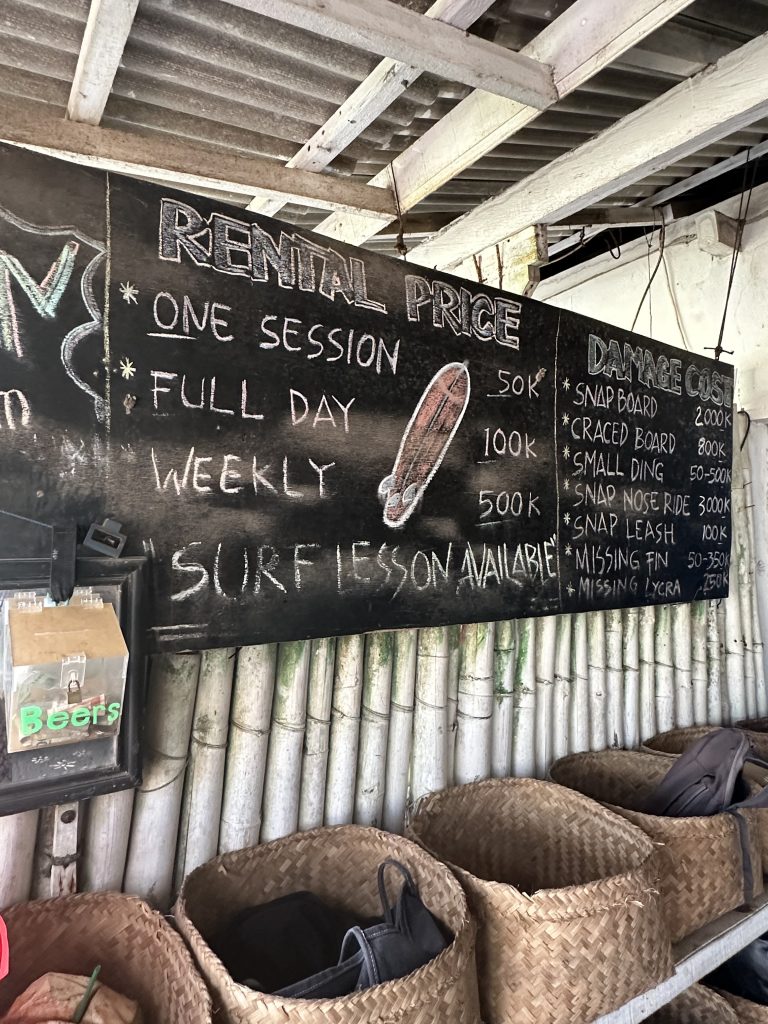 RENTAL PRICE
* ONE SESSION 50K
* FULL DAY 100K
WEEKLY 500K
"SURF LESSON AVAILABLE"
DAMAGE COST
* SNAP BOARD 2000K
* CRACED BOARD 800K
* SMALL DING 50-500K
* SNAP NOSE RIDE 3000K
* SNAP LEASH 100K
* MISSING FIN 50-350K
* MISSING LYCRA 250K
Beers